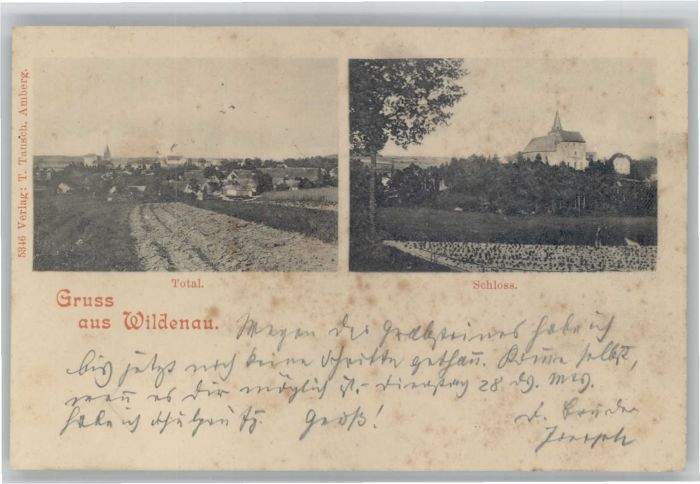 5346 Verlag: T. Tausch, Amberg.
Total.
Schloss.
Gruss
aus Wildenau.
Wegen des Grabsteines habe ich
bis jetzt noch keine Schritte gethan. Komme selbst,
wenn es dir möglich ist. Dienstag 28 ds. Mts.
habe ich Gruß!
d. Bruder
Joseph